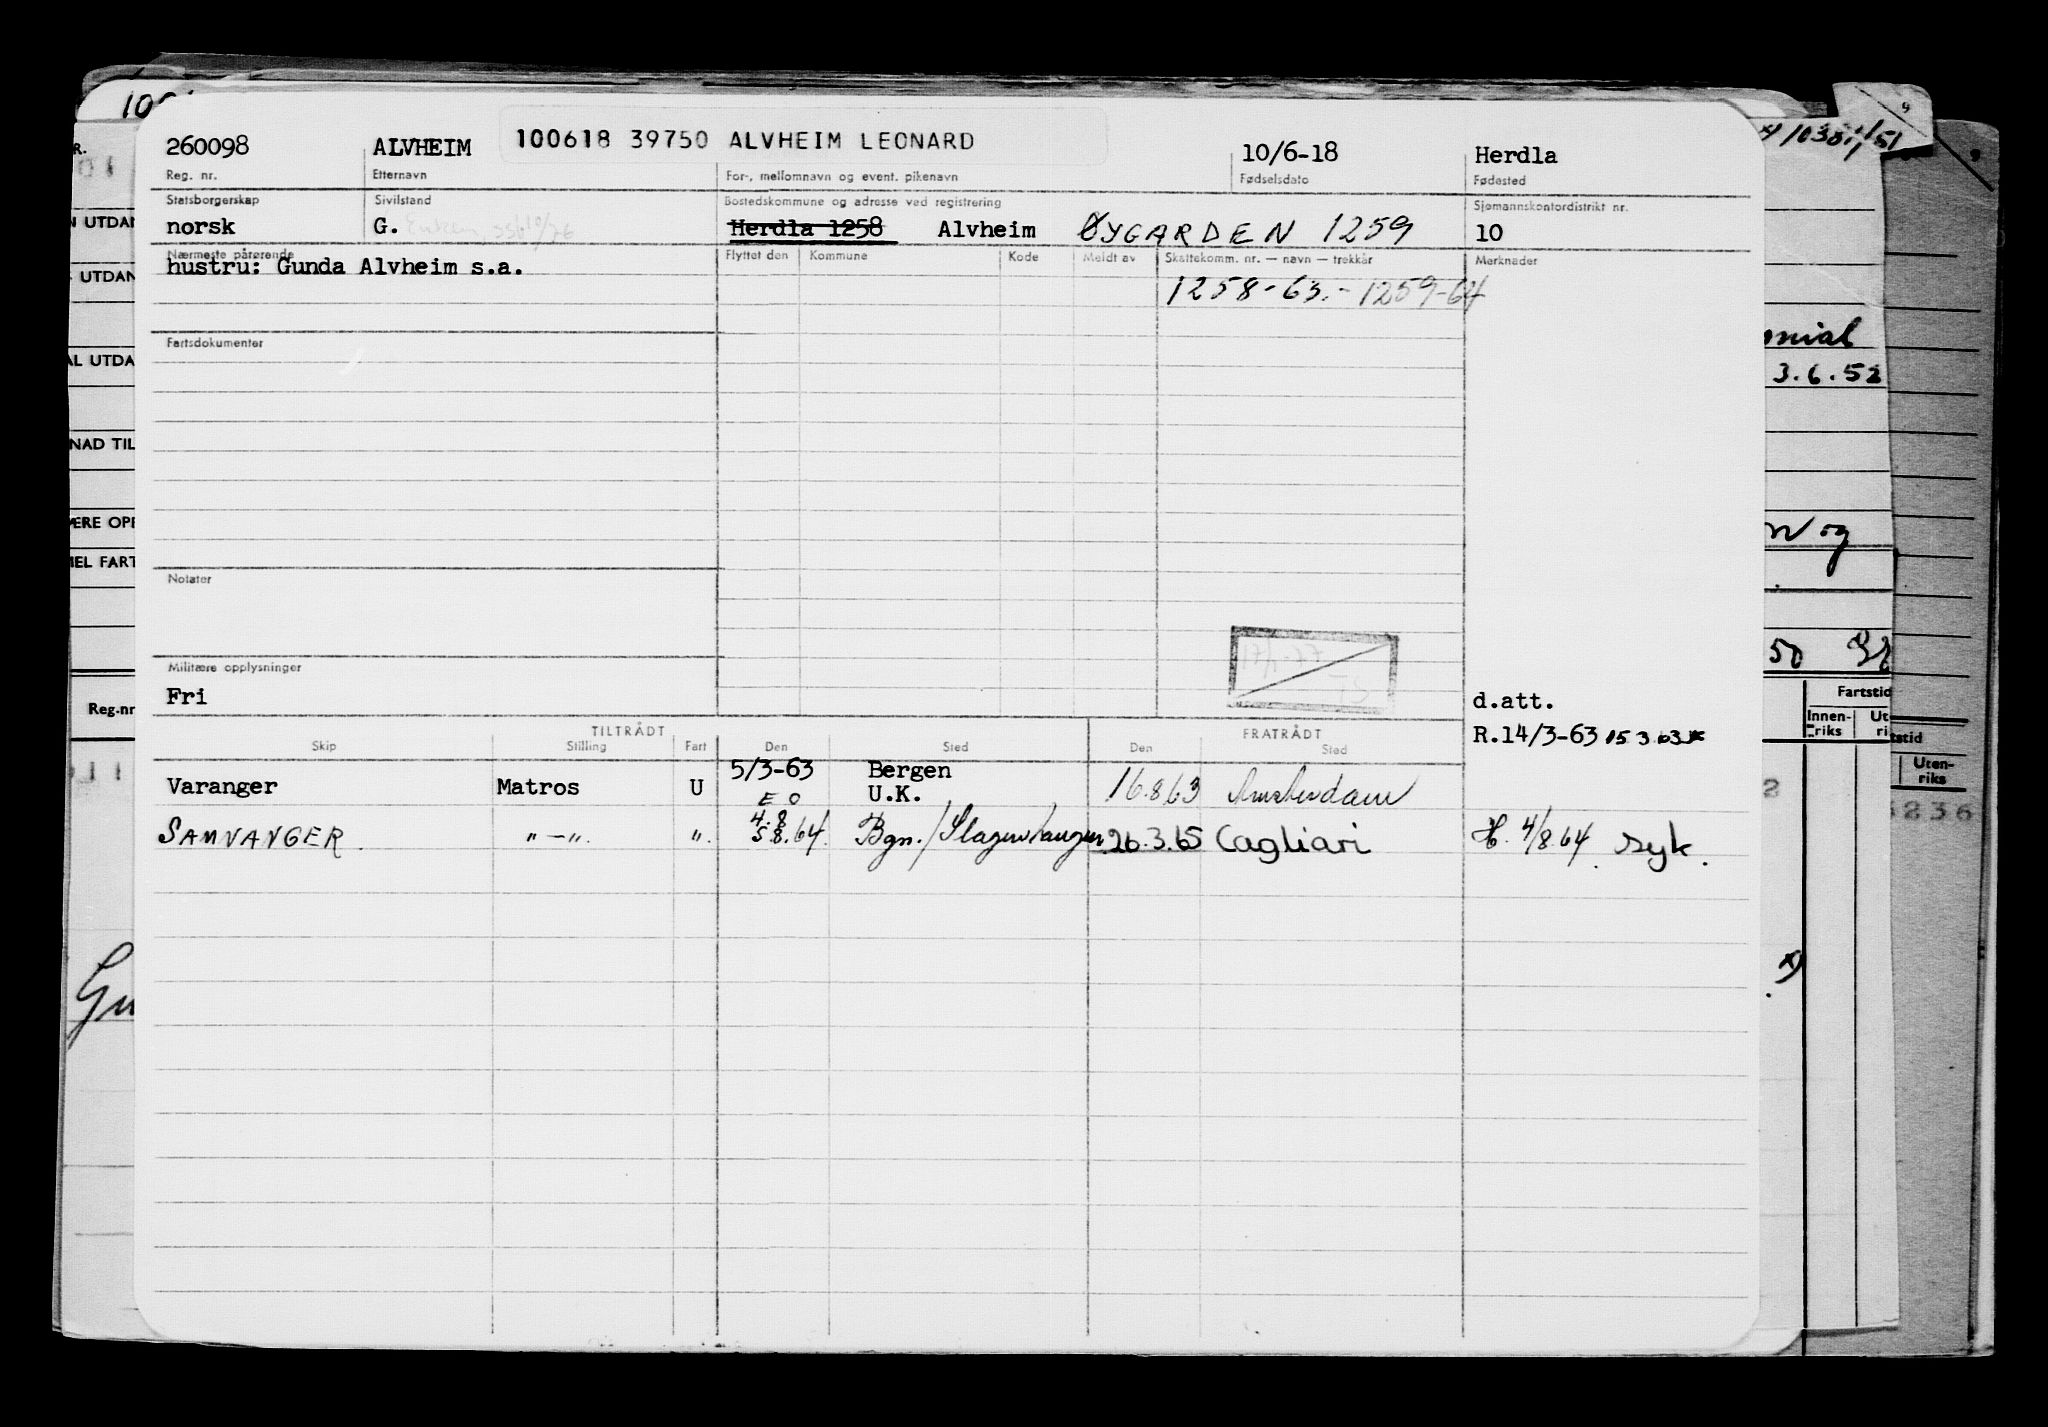 260098 ALVHEIM 100618 39750 ALVHEIM LEONARD 10/6-18 Herdla
Reg. nr. Etternavn For-, mellomnavn og event. pikenavn Fødselsdato Fødested
Statsborgerskap Sivilstand Bostedskommune og adresse ved registrering Sjømannskontordistrikt nr.
norsk G. Herdla 1258 Alvheim ØYGARDEN 1259 10
Nærmeste pårørende Flyttet den Kommune Kode Meldt av Skattekomm. nr. — navn — trekkår Merknader
hustru: Gunda Alvheim s.a.
1258-63.- 1259-64
Fartsdokumenter
Notater
Militære opplysninger
Fri d.att.
R.14/3-63 15 3 63
TILTRÅDT FRATRÅDT
Skip Stilling Fart Den Sted Den Sted
Varanger Matros U 5/3-63 Bergen 16.8.63 Amsterdam
E O U.K.
SAMNANGER " — ". ". 4.8 5.8.64 Bgn./Slagenstangen 26.3.65 Cagliari H. 4/8.64 syk.
R.
N UTDAN
UTDAN
AL UTDA
NAD TIL
ÆRE OPP
MEL FART
Reg.nr
Gu
3.6.52
og
50
Fartstid
Innen-riks
Ut
ri
tstid
Uten-riks
2
8236